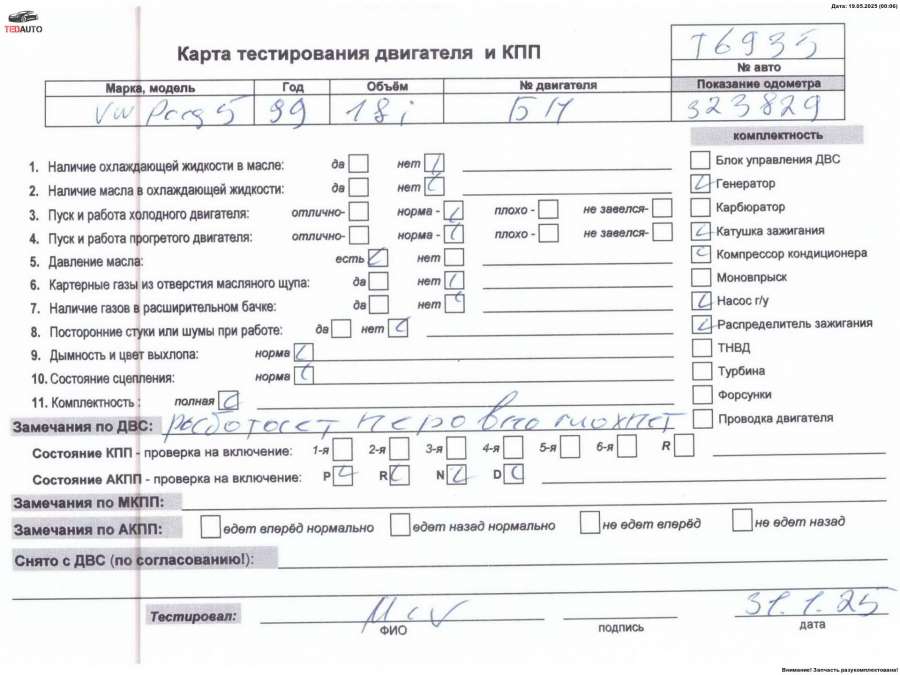 Дата: 19.05.2025 (00:06)
TEDAUTO
Карта тестирования двигателя и КПП
76935
№ авто
Марка, модель Год Объём № двигателя Показание одометра
VW 99 1.8i 323829
комплектность
1. Наличие охлаждающей жидкости в масле: да нет
2. Наличие масла в охлаждающей жидкости: да нет
3. Пуск и работа холодного двигателя: отлично- норма - плохо - не завелся-
4. Пуск и работа прогретого двигателя: отлично- норма - плохо - не завелся-
5. Давление масла: есть нет
6. Картерные газы из отверстия масляного щупа: да нет
7. Наличие газов в расширительном бачке: да нет
8. Посторонние стуки или шумы при работе: да нет
9. Дымность и цвет выхлопа: норма
10. Состояние сцепления: норма
11. Комплектность : полная
Блок управления ДВС
Генератор
Карбюратор
Катушка зажигания
Компрессор кондиционера
Моновпрыск
Насос г/у
Распределитель зажигания
ТНВД
Турбина
Форсунки
Проводка двигателя
Замечания по ДВС: работает неровно глохнет
Состояние КПП - проверка на включение: 1-я 2-я 3-я 4-я 5-я 6-я R
Состояние АКПП - проверка на включение: P R N D
Замечания по МКПП:
Замечания по АКПП: едет вперёд нормально едет назад нормально не едет вперёд не едет назад
Снято с ДВС (по согласованию!):
Тестировал: 31.1.25
ФИО подпись дата
Внимание! Запчасть разукомплектована!